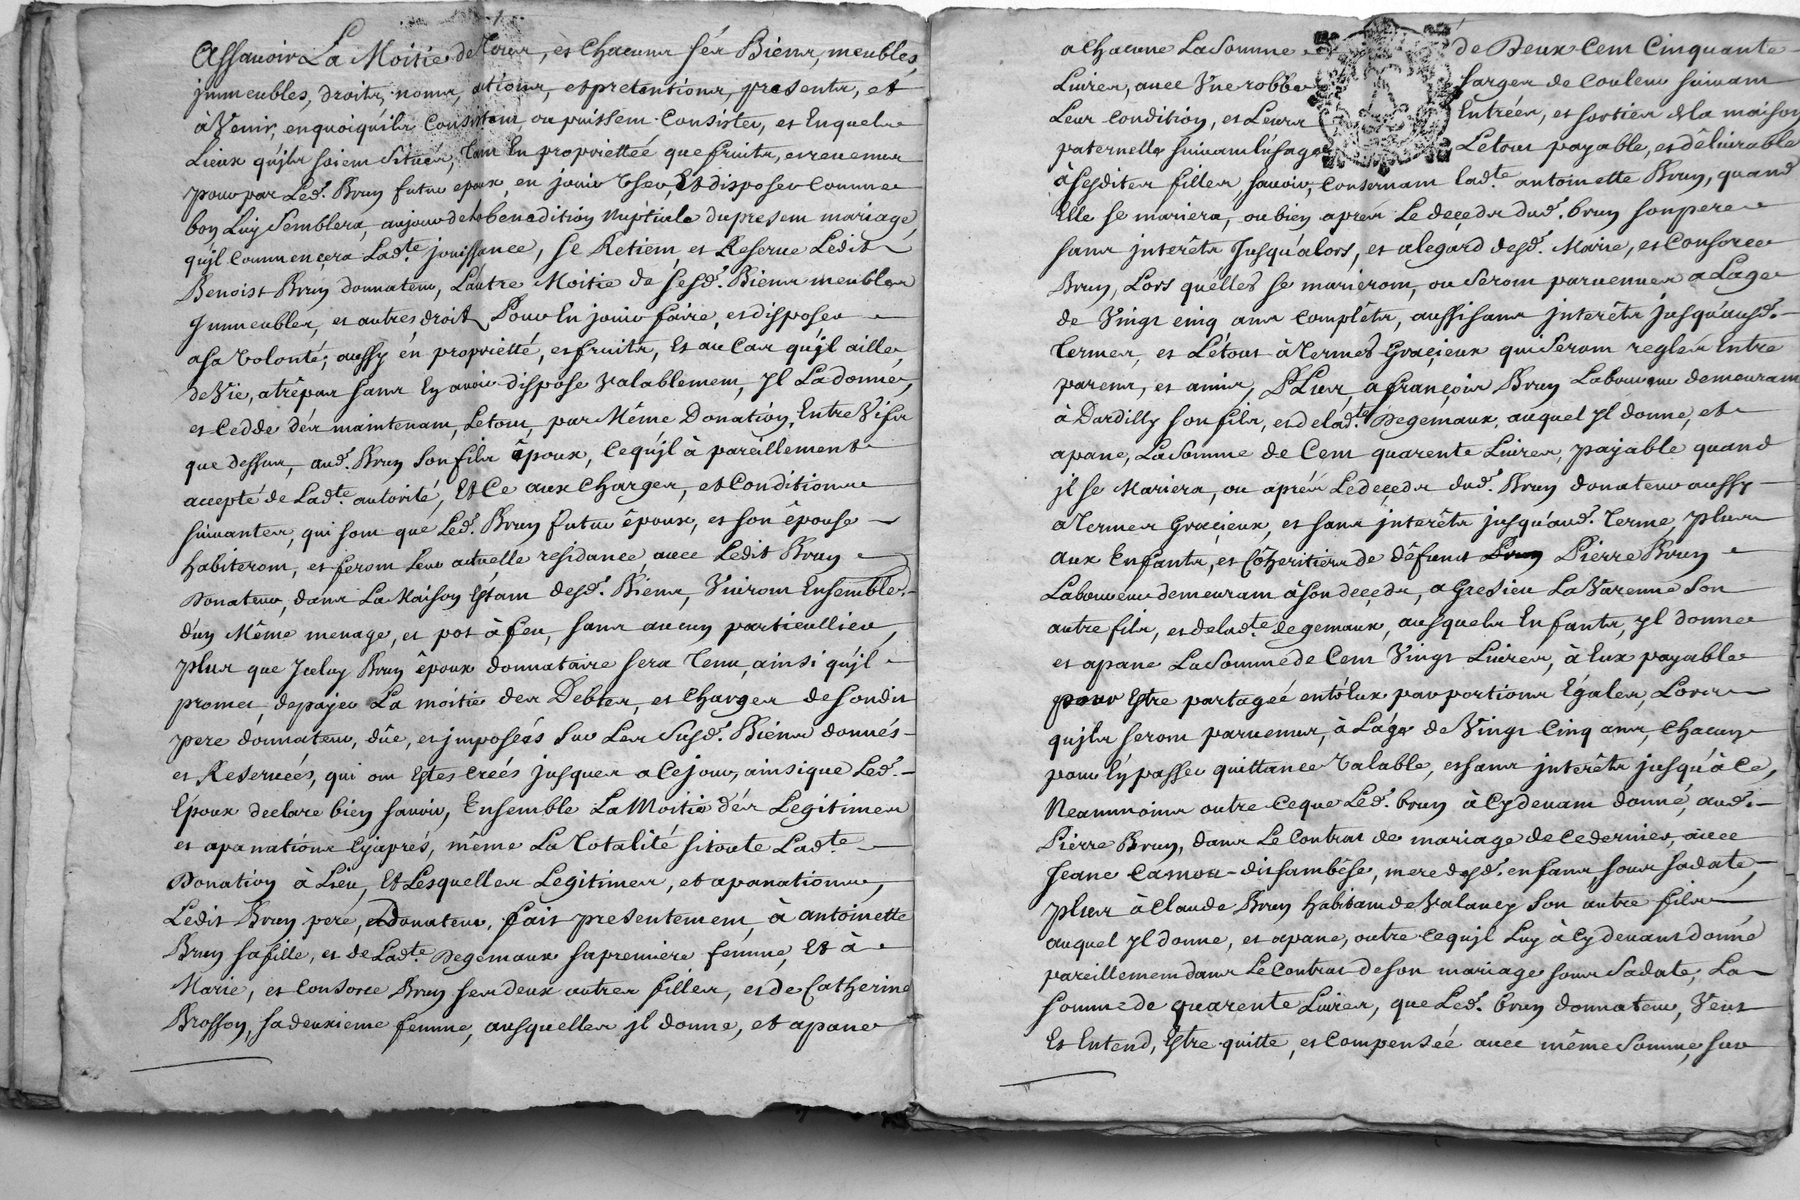 Assavoir La Moitié de Tous, et chacuns sés Biens, meubles,
jmmeubles, droits, noms, actions, et pretentions, presents, et
à Venir, enquoiquïls Consistent, ou puissent Consister, et Enquels
Lieux qu'jls soient Situés, Tant En proprietteé que fruits, et revenus
pour par Led. Brun futur epoux, en jouir Vser, Et disposer comme
bon Luy Semblera, aujour de la benedition Nuptiale du present mariage,
qu'jl commencera Ladte jouissance, se Retient, et Reserve Ledit
Benoist Brun donnateur, Láutre Moitié de sesd. Biens meubles
Jmmeubles, et autres droits Pour En jouir faire, et disposer
a sa Volonté; aussy én proprietté, et fruits, Et au Cas qu'jl aille
de Vie, a trépas sans En avoir disposé Valablement, Jl La donne,
et Cedde dés maintenant, Letout, par Même Donation, Entre Vifs
que dessus, aud. Brun son fils époux, Cequ'jl à pareillement
accepté de Ladte autorité, Et Ce aux Charges, et Conditions
suivantes, qui sont que Led. Brun futur époux, et son épouse
habiteront, et feront Leur actuelle residance, avec Ledit Brun
Donateur, dans La Maison Estant desd. Biens, Vivront Ensemble
d'un Même menage, et pot à feu, sans aucun particullier,
Plus que Jceluy Brun époux donnataire sera Tenu, ainsi qu'jl
promet, de payer La moitié des Debtes, et charges de sondit
pere donnateur, dûe, et jmposéés Sur Les Susd. Biens donnés
et Reservéés, qui ont Estes creés jusques a Cejour, ainsique Led.
Epoux declare bien savoir, Ensemble La Moitié dés Legitimes
et apanations Cyaprés, même La Totalité si toute Ladte
Donation à Lieu, Et Lesquelles Legitimes, et apanations,
Ledit Brun pere, et donateur, fait presentement, à antoinette
Brun sa fille, et de Ladte Degemaux sa premiere femme, Et à
Marie, et Consorce Brun ses deux autres filles, et de Catherine
Brosson, sa deuxieme femme, ausquelles jl donne, et apane
a chacune La Somme de Deux Cent Cinquante
Livres, avec Vne robbe sarges de Couleur suivant
Leur condition, et Leurs Entrées, et sorties de la maison
paternelle suivant l'úsage Letout payable, et délivrable
à sesdites filles, savoir, Consernant ladte antoinette Brun, quand
Elle se mariera, ou bien aprés Le decçeds dud. brun son pere
sans jnteréts Jusqu'alors, et a legard desd. Marie, et Consorce
Brun, Lors qu'élles se marieront, ou Seront parvenues a Lage
de Vingt cinq ans complets, aussi sans jnteréts jusqu'ausd.
Termes, et Létout à Termes Graçieux qui Seront reglés Entre
parens, et amis, Plus, a françois Brun Laboureur demeurant
à Dardilly son fils, et de ladte Degemaux, auquel jl donne, et
apane, La Somme de Cent quarente Livres, payable quand
jl se Mariera, ou aprés Le deçeds dud. Brun donateur aussy
a Termes Graçieux, et sans jnteréts jusqu'aud. Terme, Plus
aux Enfants, et Cohéritiers de défunt Pierre Brun
Laboureur demeurant à son deçeds, a Gresieu La Varenne son
autre fils, et de ladte degemaux, ausquels Enfants, jl donne
et apane La Somme de Cent Vingt Livres, à Eux payable
pour Estre partageé entr'eux par portions Egales, Lors
qu'jls seront parvenus, à Láge de Vingt Cinq ans, Chacun
pour én passer quittance Valable, et sans jnteréts jusqu'à Ce,
Neammoins outre Ceque Led. brun à Cydevant donné, aud.
Pierre Brun, dans Le Contrat de mariage de Cedernier, avec
Jeane Camou dit sambése, mere desd. enfans sous sa date,
Plus à Claude Brun habitant de Valancy son autre fils
auquel jl donne, et apane, outre Cequ'jl Luy à Cydevant donné
pareillement dans Le Contrat de son mariage sous sa date; La
somme de quarente Livres, que Led. brun donnateur, Veut
Et Entend, Estre quitte, et Compenséé avec même Somme, sur